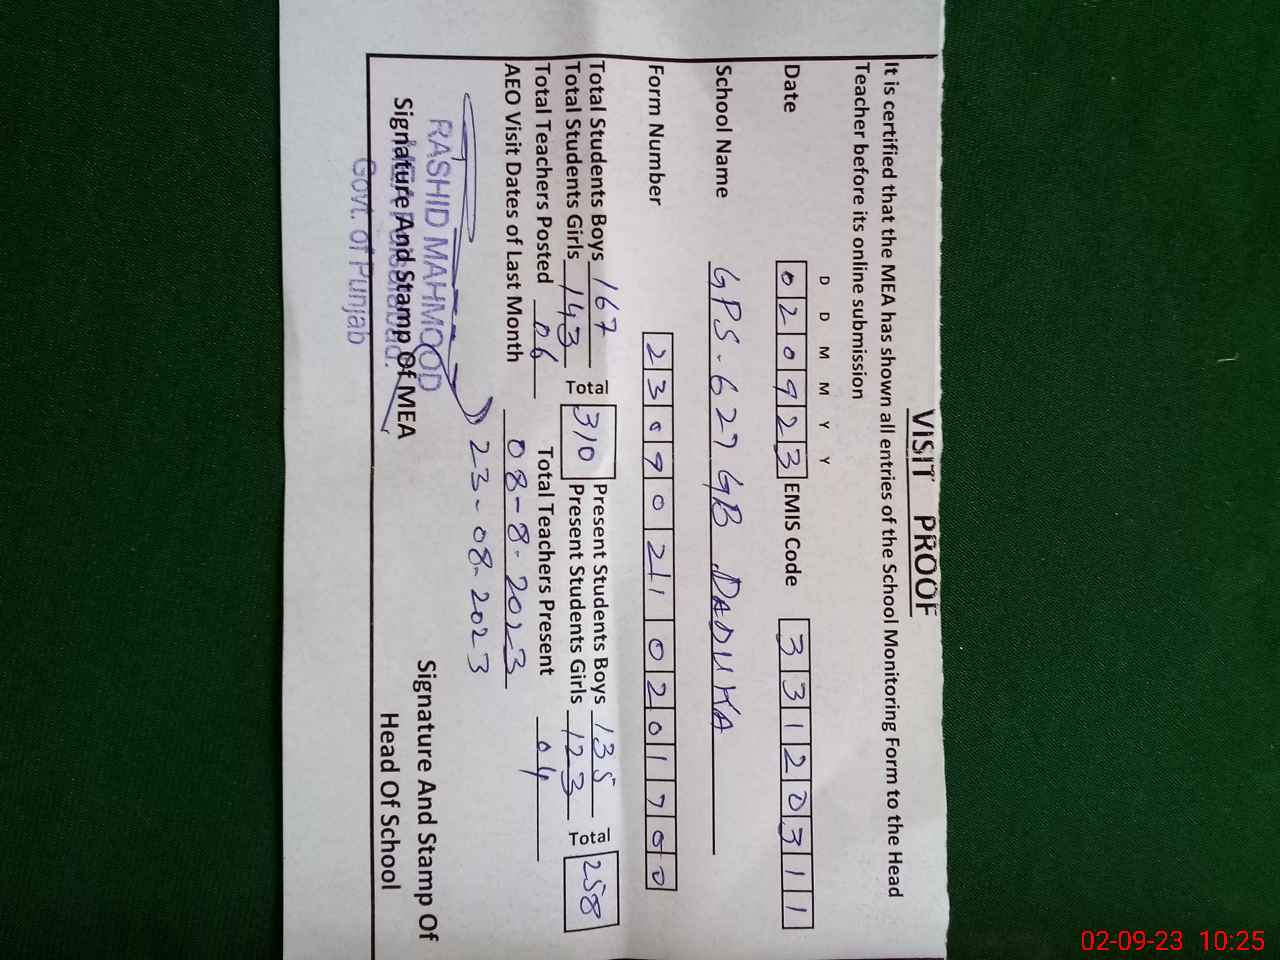 VISIT PROOF
It is certified that the MEA has shown all entries of the School Monitoring Form to the Head
Teacher before its online submission
D D M M Y Y
Date 020923 EMIS Code 33120311
School Name GPS. 627 GB DADUKA
Form Number 23090210201700
Total Students Boys 167 Present Students Boys 135
Total Students Girls 143 Total 310 Present Students Girls 123 Total 258
Total Teachers Posted 06 Total Teachers Present 04
AEO Visit Dates of Last Month 08-8-2023
23-08-2023
RASHID MAHMOOD
Signature And Stamp Of MEA
Faisalabad.
Govt. of Punjab
Signature And Stamp Of
Head Of School
02-09-23 10:25